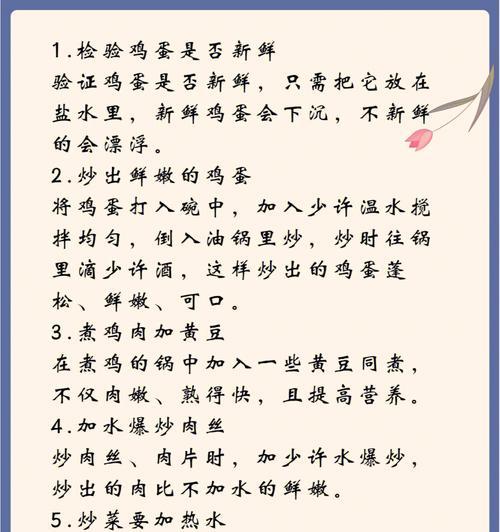 1.检验鸡蛋是否新鲜
验证鸡蛋是否新鲜，只需把它放在
盐水里，新鲜鸡蛋会下沉，不新鲜
的会漂浮。
2.炒出鲜嫩的鸡蛋
将鸡蛋打入碗中，加入少许温水搅
拌均匀，倒入油锅里炒，炒时往锅
里滴少许酒，这样炒出的鸡蛋蓬
松、鲜嫩、可口。
3.煮鸡肉加黄豆
在煮鸡的锅中加入一些黄豆同煮，
不仅肉嫩、熟得快，且提高营养。
4.加水爆炒肉丝
炒肉丝、肉片时，加少许水爆炒，
炒出的肉比不加水的鲜嫩。
5.炒菜要加热水